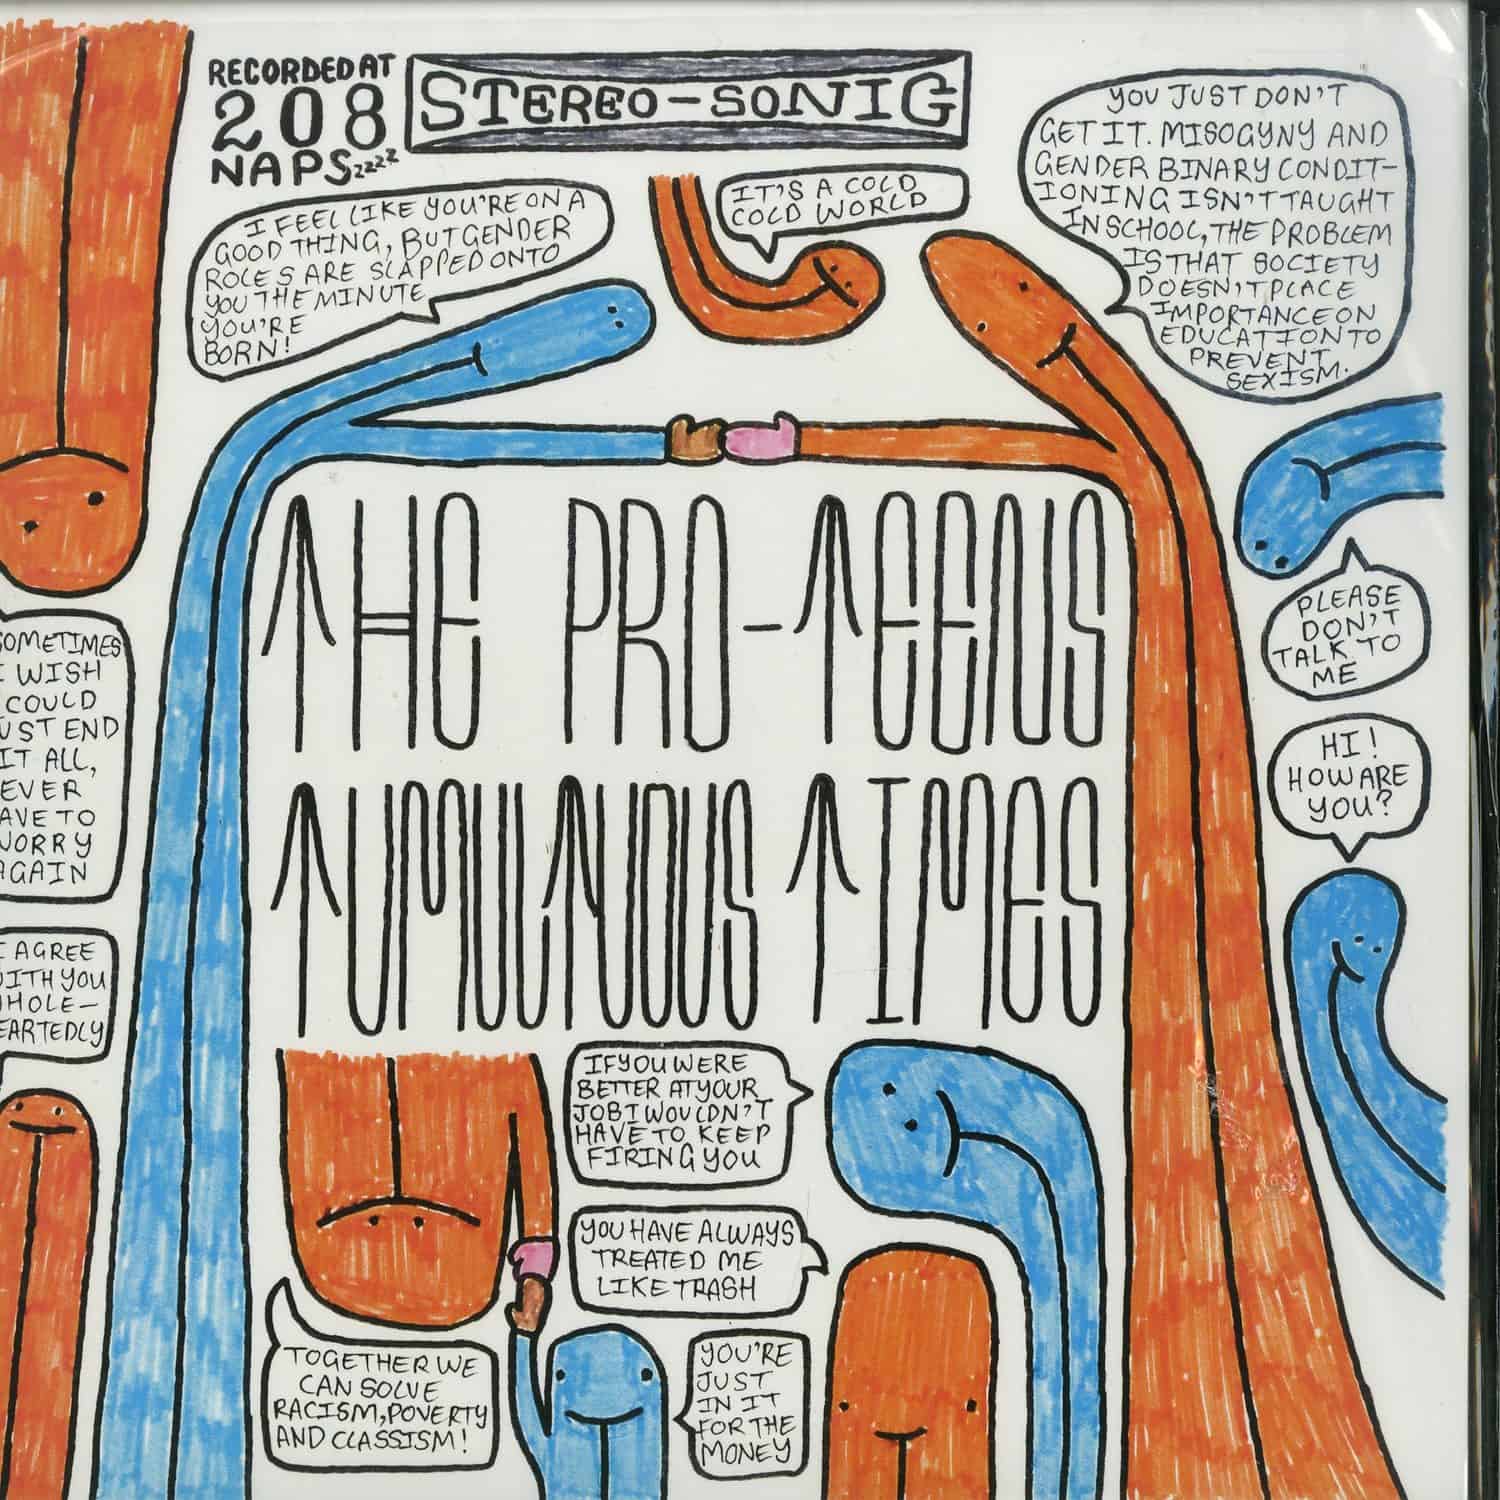 RECORDED AT
208
NAPSzzzz
STEREO-SONIG
I FEEL LIKE YOU'RE ON A
GOOD THING, BUT GENDER
ROLES ARE SLAPPED ONTO
YOU THE MINUTE
YOU'RE
BORN!
IT'S A COLD
COLD WORLD
YOU JUST DON'T
GET IT. MISOGYNY AND
GENDER BINARY CONDIT-
IONING ISN'T TAUGHT
IN SCHOOL, THE PROBLEM
IS THAT SOCIETY
DOESN'T PLACE
IMPORTANCE ON
EDUCATION TO
PREVENT
SEXISM.
THE PRO-TEENS
TUMULTUOUS TIMES
PLEASE
DON'T
TALK TO
ME
HI!
HOW ARE
YOU?
SOMETIMES
I WISH
COULD
UST END
IT ALL,
EVER
AVE TO
WORRY
AGAIN
I AGREE
WITH YOU
WHOLE-
EARTEDLY
IF YOU WERE
BETTER AT YOUR
JOB I WOULDN'T
HAVE TO KEEP
FIRING YOU
YOU HAVE ALWAYS
TREATED ME
LIKE TRASH
TOGETHER WE
CAN SOLVE
RACISM, POVERTY
AND CLASSISM!
YOU'RE
JUST
IN IT
FOR THE
MONEY